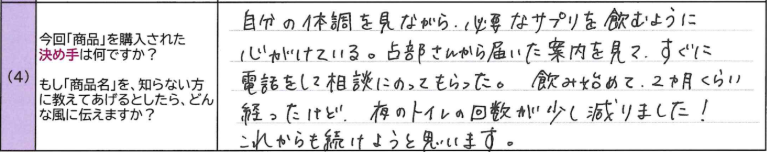 (4)
今回「商品」を購入された
決め手は何ですか?
もし「商品名」を、知らない方
に教えてあげるとしたら、どん
な風に伝えますか?
自分の体調を見ながら、必要なサプリを飲むように
心がけている。占部さんから届いた案内を見て、すぐに
電話をして相談にのってもらった。 飲み始めて、2カ月くらい
経ったけど、夜のトイレの回数が少し減りました!
これからも続けようと思います。